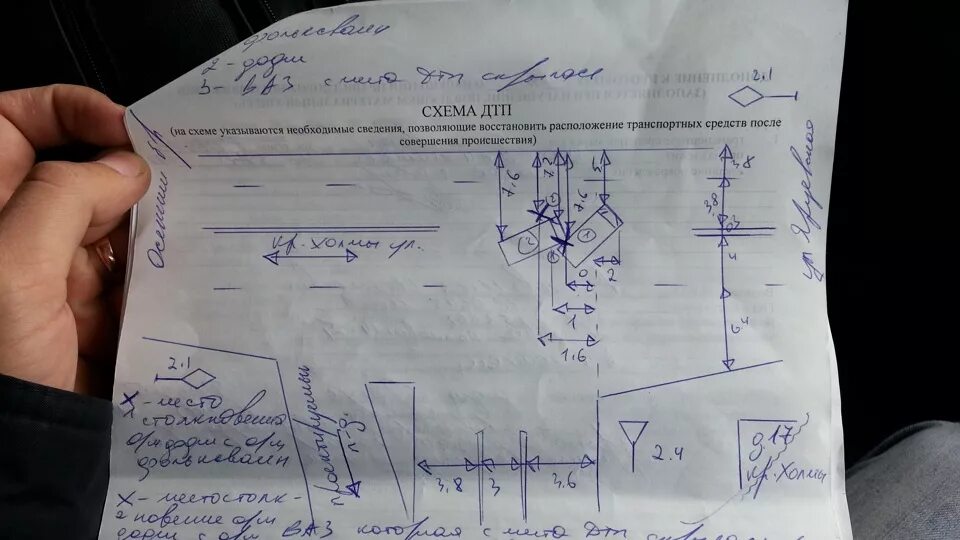 фольксваген
2 - додж
3 - ВАЗ с места ДТП скрылась
2.1
СХЕМА ДТП
(на схеме указываются необходимые сведения, позволяющие восстановить расположение транспортных средств после
совершения происшествия)
Осенний б/р
кр. Холмы ул.
7.6
7.2
7.6
5
2
1
0
2
1
1.6
3,8
3,8
0,3
6.4
2.1
X - место
1 столкновения
а/м додж с а/м
фольксваген
X - место столк-
2 новение а/м
додж с а/м ВАЗ которая с места ДТП
проектируемый
п-д.
3,8
3
3.6
2.4
д.17
кр. Холмы